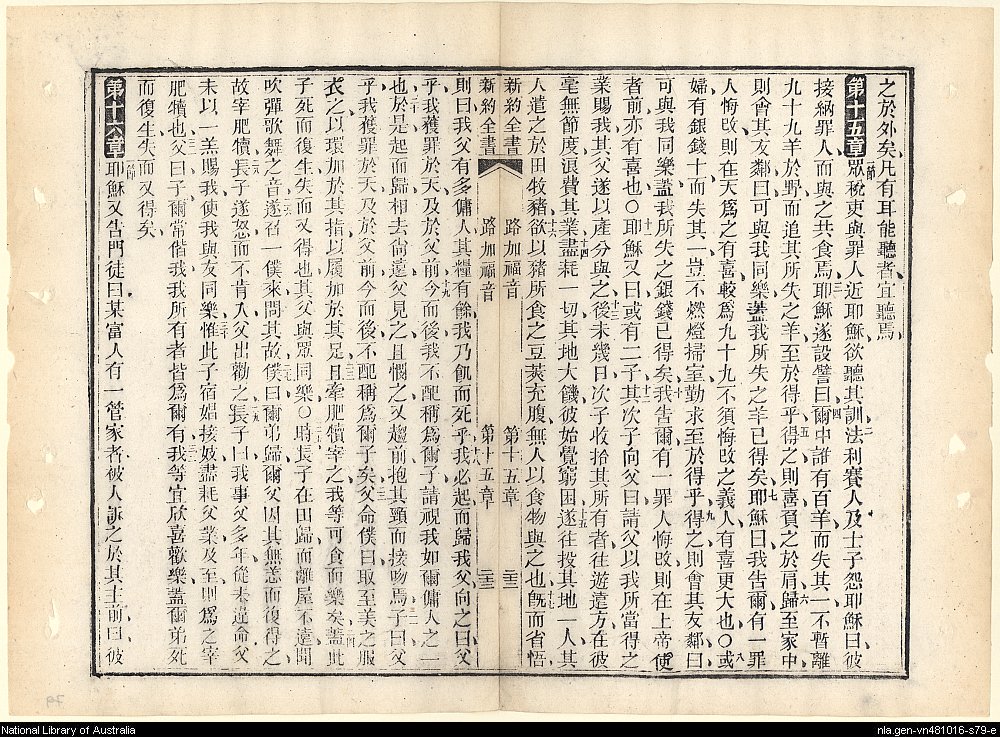 之於外矣凡有耳能聽者宜聽焉
第十五章一節眾稅吏與罪人近耶穌欲聽其訓二法利賽人及士子怨耶穌曰彼
接納罪人而與之共食焉三耶穌遂設譬曰四爾中誰有百羊而失其一不暫離
九十九羊於野而追其所失之羊至於得乎五得之則喜負之於肩六歸至家中
則會其友鄰曰可與我同樂蓋我所失之羊已得矣七耶穌曰我告爾有一罪
人悔改則在天為之有喜較為九十九不須悔改之義人有喜更大也〇八或
婦有銀錢十而失其一豈不燃燈掃室勤求至於得乎九得之則會其友鄰曰
可與我同樂蓋我所失之銀錢已得矣十我告爾有一罪人悔改則在上帝使
者前亦有喜也〇十一耶穌又曰或有二子十二其次子向父曰請父以我所當得之
業賜我其父遂以產分與之十三後未幾日次子收拾其所有者往遊遠方在彼
毫無節度浪費其業十四盡耗一切其地大饑彼始覺窮困十五遂往投其地一人其
人遣之於田牧豬十六欲以豬所食之豆莢充腹無人以食物與之也十七旣而省悟
新約全書 路加福音 第十五章 三十三
新約全書 路加福音 第十五章 三十三
則曰我父有多傭人其糧有餘我乃飢而死乎十八我必起而歸我父向之曰父
乎我獲罪於天及於父前十九今而後我不配稱爲爾子請視我如爾傭人之一
也二十於是起而歸相去尚遠父見之且憫之又趨前抱其頸而接吻焉二一子曰父
乎我獲罪於天及於父前今而後不配稱爲爾子矣二二父命僕曰取至美之服
衣之以環加於其指以履加於其足二三且牽肥犢宰之我等可食而樂矣二四蓋此
子死而復生失而又得也其父與眾同樂〇二五時長子在田歸而離屋不遠聞
吹彈歌舞之音二六遂召一僕來問其故二七僕曰爾弟歸爾父因其無恙而復得之
故宰肥犢二八長子遂怒而不肯入父出勸之二九長子曰我事父多年從未違命父
未以一羔賜我使我與友同樂三十惟此子宿娼接妓盡耗父業及至則爲之宰
肥犢也三一父曰子爾常偕我我所有者皆爲爾有三二我等宜欣喜歡樂蓋爾弟死
而復生失而又得矣
第十六章一節耶穌又告門徒曰某富人有一管家者被人訴之於其主前曰彼
National Library of Australia
nla.gen-vn481016-s79-e